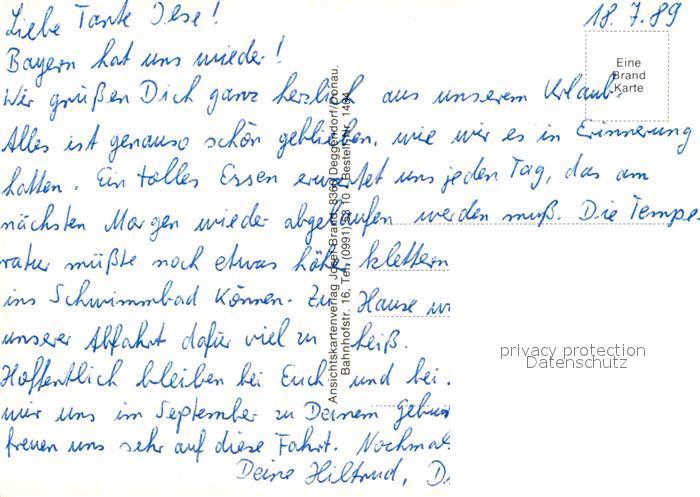 18.7.89
Liebe Tante Ilse!
Bayern hat uns wieder!
Wir grüßen Dich ganz herzlich aus unserem Urlaub.
Alles ist genauso schön geblieben, wie wir es in Erinnerung
hatten. Ein tolles Essen erwartet uns jeden Tag, das am
nächsten Morgen wieder abgelaufen werden muß. Die Tempe-
ratur müßte noch etwas höher klettern
ins Schwimmbad können. Zu Hause
unserer Abfahrt dafür viel zu heiß.
Hoffentlich bleiben bei Euch und bei
wir uns im September zu Deinem
freuen uns sehr auf diese Fahrt. Nochmals
Deine Hiltrud,
Eine
Brand
Karte
Ansichtskartenverlag Josef Brand, 8360 Deggendorf/Donau.
Bahnhofstr. 16, Tel. (0991) Bestell-Nr.
privacy protection
Datenschutz